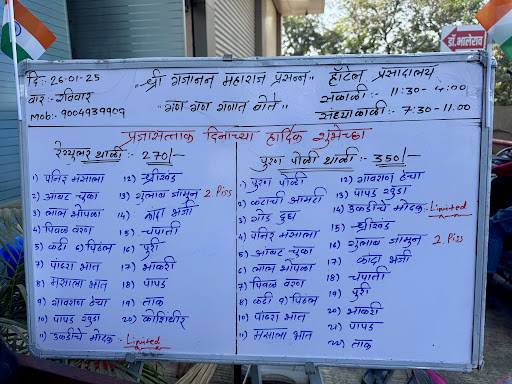 दि: 26-01-25
वार:- रविवार
Mob:- 9004939909
श्री गजानन महाराज प्रसन्न
"गण गण गणात बोते"
हॉटेल प्रसादालय
सकाळी:- 11:30-4:00
संध्याकाळी:- 7:30-11:00
डॉ. भालेराव
प्रजासत्ताक दिनाच्या हार्दिक शुभेच्छा
रेग्युलर थाळी:- 270/-
1) पनिर मसाला
2) आंबट चुका
3) लाल भोपळा
4) पिवळ वरण
5) कढी 6) पिठल
7) पांढरा भात
8) मसाला भात
9) गावरान ठेचा
10) पापड खुडा
11) उकडीचे मोदक:- Limited
12) श्रीखंड
13) गुलाब जामुन 2 Piss
14) कांदा भजी
15) चपाती
16) पुरी
17) भाकरी
18) पापड
19) ताक
20) कोशिंबीर
पुरण पोळी थाळी:- 350/-
1) पुरण पोळी
2) कटाची आमटी
3) गोड दुध
4) पनिर मसाला
5) आंबट चुका
6) लाल भोपळा
7) पिवळ वरण
8) कढी 9) पिठल
10) पांढरा भात
11) मसाला भात
12) गावरान ठेचा
13) पापड खुडा
14) उकडीचे मोदक:- Limited
15) श्रीखंड
16) गुलाब जामुन 2 Piss
17) कांदा भजी
18) चपाती
19) पुरी
20) भाकरी
21) पापड
22) ताक